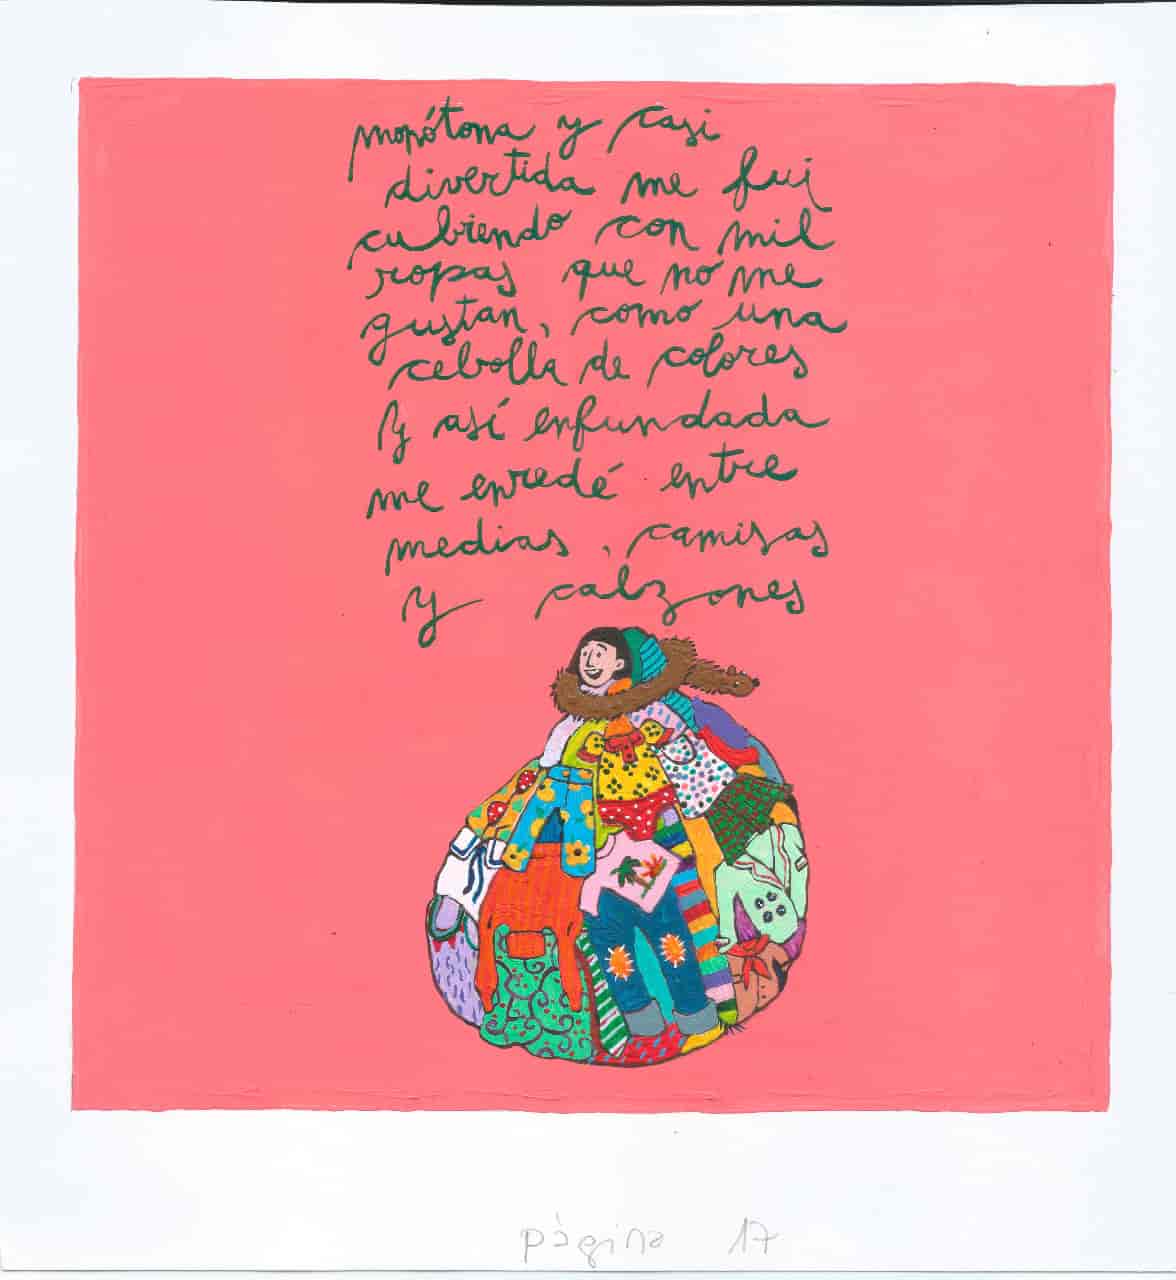 monótona y casi
divertida me fui
cubriendo con mil
ropas que no me
gustan, como una
cebolla de colores
y así enfundada
me enredé entre
medias, camisas
y calzones
página 17